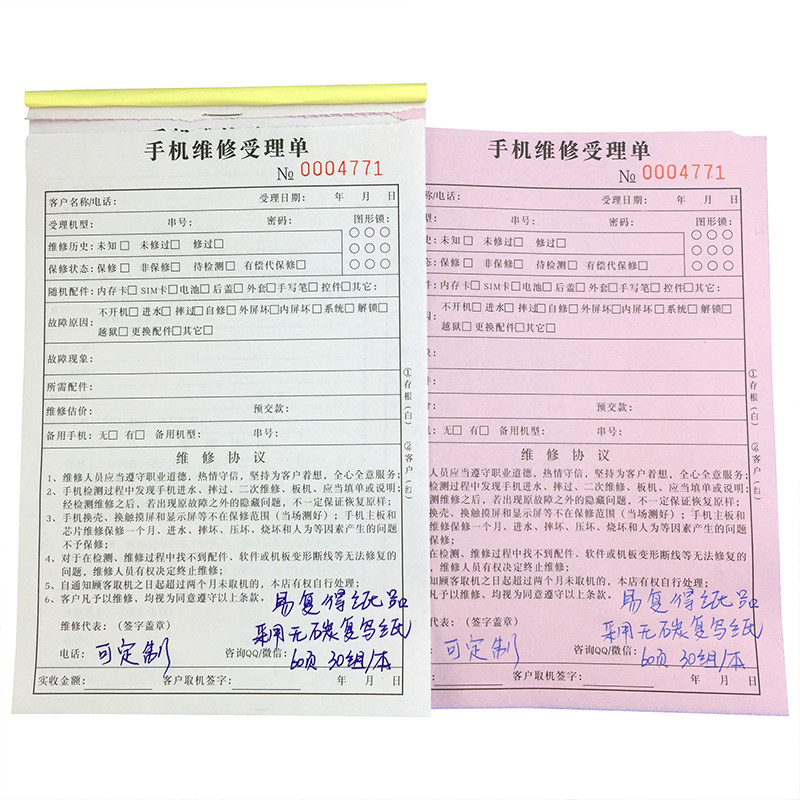 手机维修受理单
№ 0004771
客户名称/电话： 受理日期： 年 月 日
受理机型： 串号： 密码： 图形锁：
维修历史：未知□ 未修过□ 修过□
保修状态：保修□ 非保修□ 待检测□ 有偿代保修□
随机配件：内存卡□SIM卡□电池□后盖□外套□手写笔□控件□其它：
故障原因：不开机□进水□摔过□自修□外屏坏□内屏坏□系统□解锁□
越狱□更换配件□其它□
故障现象：
所需配件：
维修估价： 预交款：
备用手机：无□ 有□ 备用机型： 串号：
维修协议
1、维修人员应当遵守职业道德，热情守信，坚持为客户着想，全心全意服务；
2、手机检测过程中发现手机进水、摔过、二次维修、板机、应当填单或说明；
经检测维修之后，若出现原故障之外的隐藏问题，不一定保证恢复原样；
3、手机换壳、换触摸屏和显示屏等不在保修范围（当场测好）；手机主板和
芯片维修保修一个月、进水、摔坏、压坏、烧坏和人为等因素产生的问题
不予保修；
4、对于在检测、维修过程中找不到配件、软件或机板变形断线等无法修复的
问题，维修人员有权决定终止维修；
5、自通知顾客取机之日起超过两个月未取机的，本店有权自行处理；
6、客户凡予以维修、均视为同意遵守以上条款。
易复得纸品
维修代表：（签字盖章）
采用无碳复写纸
电话： 可定制 咨询QQ/微信： 60页 30组/本
实收金额： 客户取机签字： 年 月 日
①存根（白） ②客户（红）
手机维修受理单
№ 0004771
/电话： 受理日期： 年 月 日
： 串号： 密码： 图形锁：
史：未知□ 未修过□ 修过□
态：保修□ 非保修□ 待检测□ 有偿代保修□
件：内存卡□SIM卡□电池□后盖□外套□手写笔□控件□其它：
因：不开机□进水□摔过□自修□外屏坏□内屏坏□系统□解锁□
越狱□更换配件□其它□
：
：
： 预交款：
机：无□ 有□ 备用机型： 串号：
维修协议
人员应当遵守职业道德，热情守信，坚持为客户着想，全心全意服务；
检测过程中发现手机进水、摔过、二次维修、板机、应当填单或说明；
测维修之后，若出现原故障之外的隐藏问题，不一定保证恢复原样；
换壳、换触摸屏和显示屏等不在保修范围（当场测好）；手机主板和
维修保修一个月、进水、摔坏、压坏、烧坏和人为等因素产生的问题
保修；
在检测、维修过程中找不到配件、软件或机板变形断线等无法修复的
，维修人员有权决定终止维修；
知顾客取机之日起超过两个月未取机的，本店有权自行处理；
凡予以维修、均视为同意遵守以上条款。
易复得纸品
代表：（签字盖章）
采用无碳复写纸
： 可定制 咨询QQ/微信： 60页 30组/本
额： 客户取机签字： 年 月 日
①存根（白） ②客户（红）